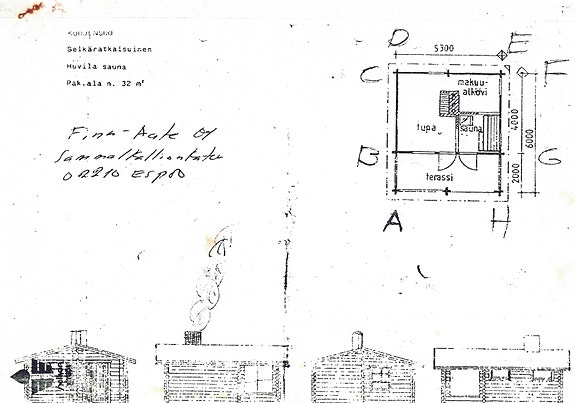 Selkäratkaisuinen
Huvila sauna
Pak.ala n. 32 m²
Finn-Aate Oy
Sammalkallionkatu
02210 ESPOO
D
E
5300
C
F
makuu-
alkovi
tupa
sauna
4000
6000
B
G
terassi
2000
A
H